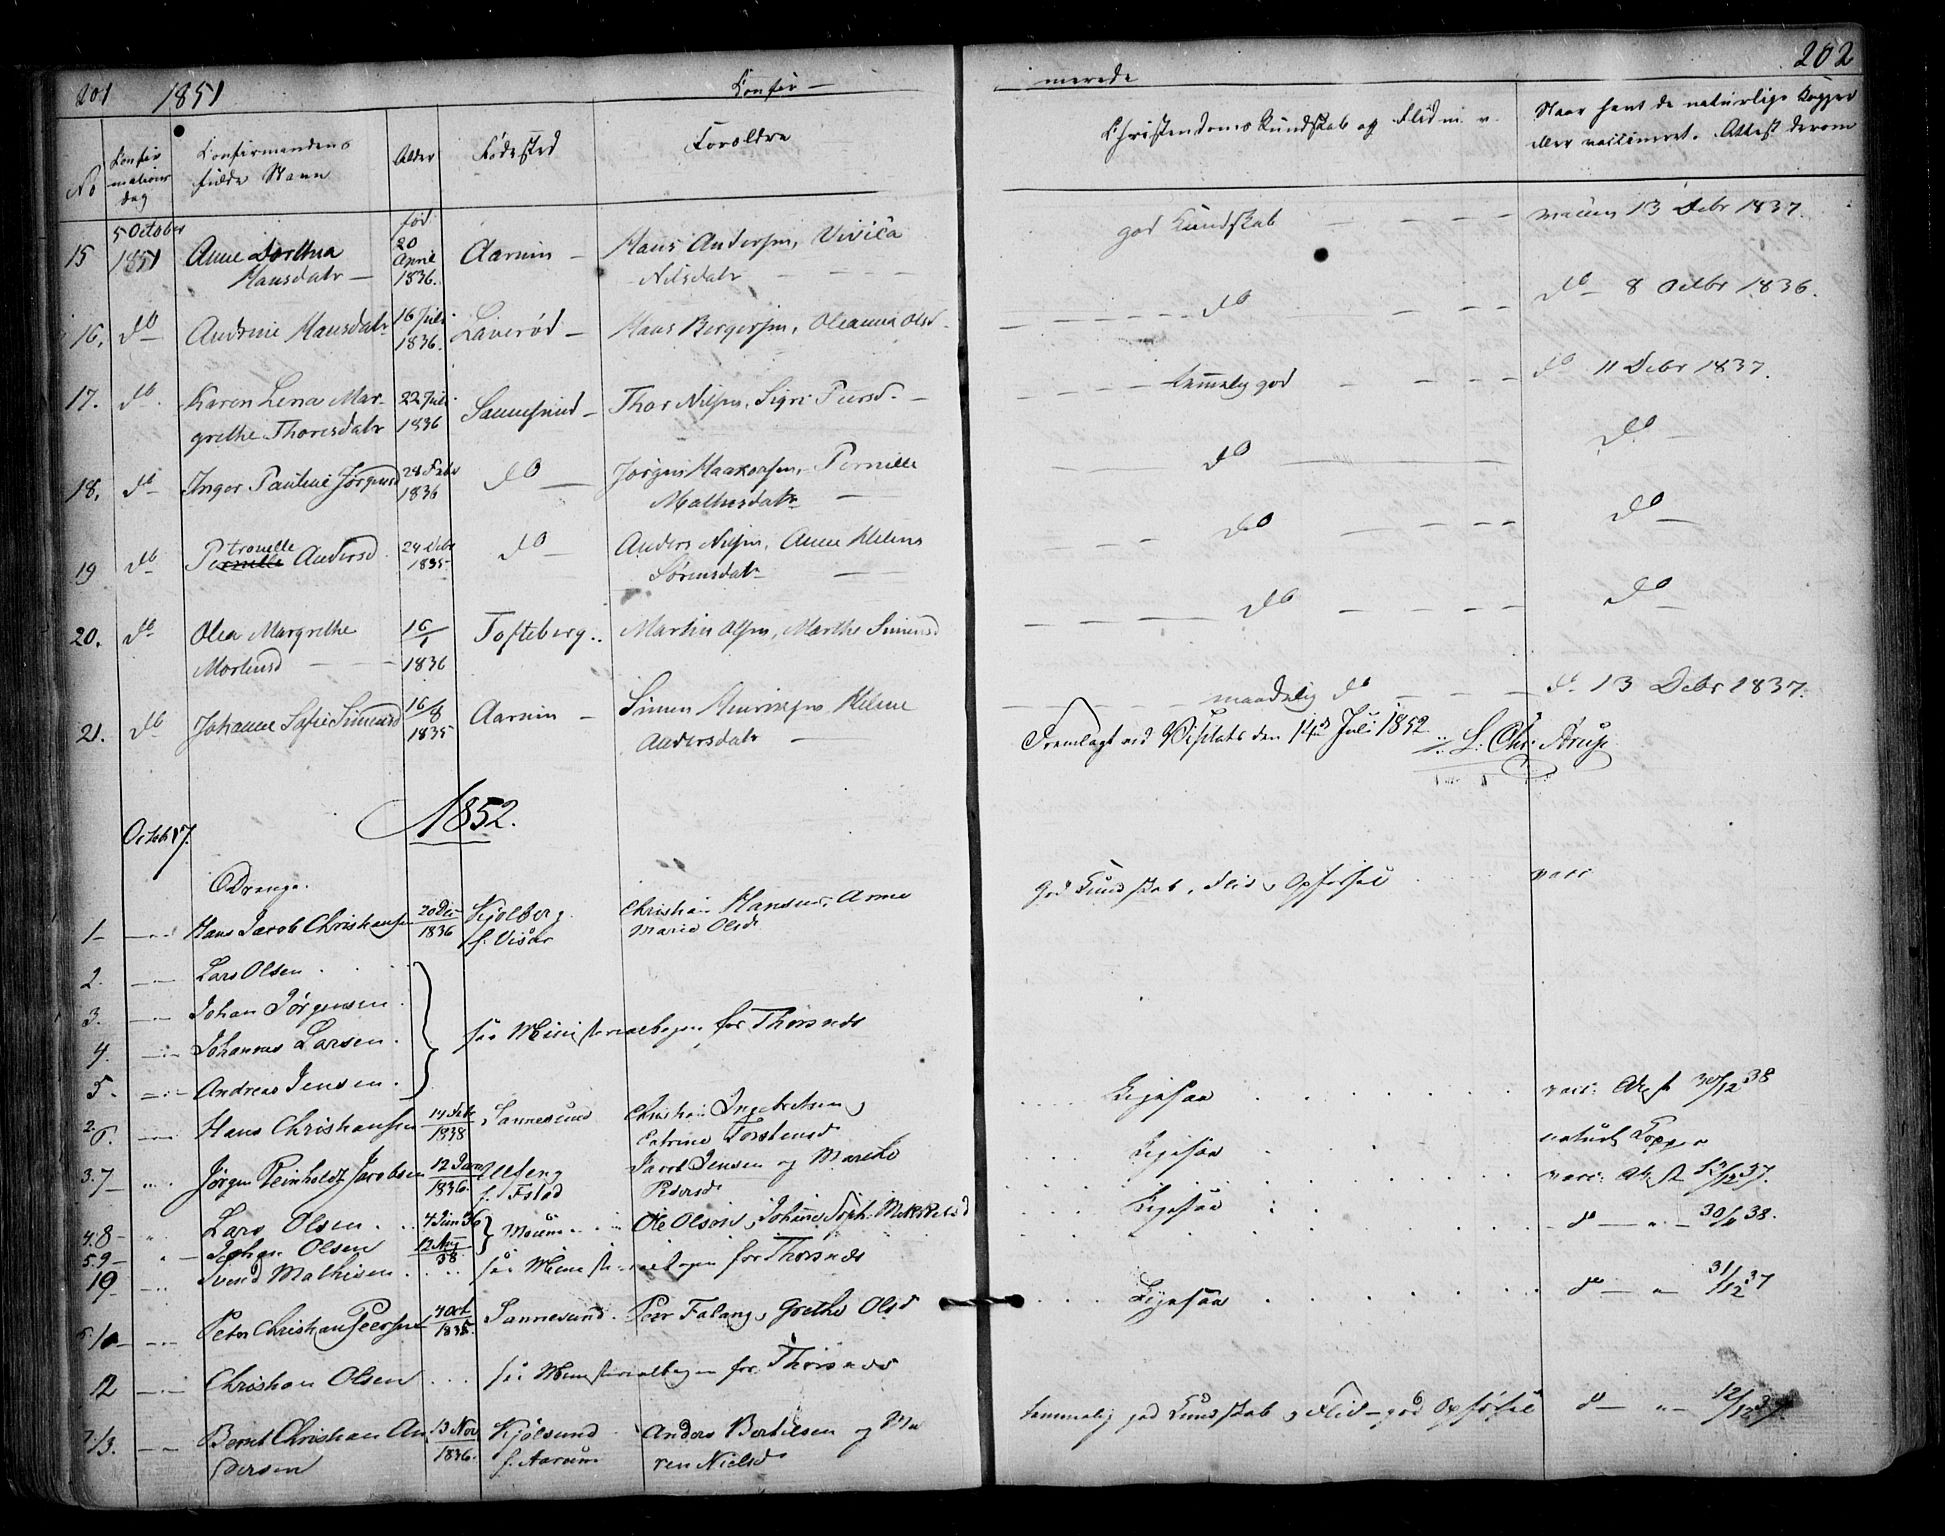 201 1851 Confir-
merede 202
No Confir mations dag Confirmandens fulde Navn Alder Fødested Foreldre Christendoms Kundskab og Flid m. v. Naar havt de naturlige Kopper eller vaccineret. Attest derom
15 5 October 1851 Anne Dorthea Hansdatr — fød 20 April 1836. Aarum — Hans Andersen, Vivica Nilsdatr god Kundskab — — — vaccin 13 Debr 1837.
16. do Andrine Hansdatr 16 Juli 1836. Laverød — Hans Borgersen, Oleanna Olsd. do do — 8 Octbr 1836.
17. do. Karen Lena Mar- grethe Thoresdatr 22 Juli 1836 Sannesund — Thor Nilsen, Sigri Peersd. — temmelig god do 11 Debr 1837.
18. do Inger Pauline Jørgensd 28 Febr 1836 do — Jørgen Haakonsen, Pernille Mathisdatr — do do —
19 do Petronelle Andersd. 24 Debr 1835 do — Anders Nilsen, Anne Helene Sörensdatr — do do —
20. do Olea Margrethe Mortensd 16/1 1836 Tofteberg.. Martin Olsen, Marthe Simensd do do —
21. do Johanne Sofie Simensd 16/8 1835 Aarum — Simen Henriksen Helene Andersdatr — maadelig do do. 13 Debr 1837.
Fremlagt ved Visitats den 14de Juli 1852 L: Chr:
1852.
Octobr 17.
Odrenge.
1 Hans Jacob Christiansen 20 Dec 1836 Kjølberg f. Visür Christian Hansen, Anne Marie Olsd God Kundskab, Flid, Opførsel vacc
2. Lars Olsen.
3. Johan Jørgensen.
4. Johannes Larsen. see Ministerialbogen for Thorsnæs
5. Andreas Jensen.
2. 6. Hans Christiansen 14 Febr 1838 Sannesund Christian Ingebretsen, Catrine Torstensd Ligesaa vacc: Attest 30/12 38
3. 7 Jørgen Reinholdt Jacobsen 12 Jan 1836. Jacob Jensen og Marthe Pedersd Ligesaa naturl Kopper
4. 8 — Lars Olsen. 4 Juni 36 } Moum Ole Olsen, Johanne Soph: Ligesaa vacc: Attest 13/12 37.
5. 9 — Johan Olsen 12 Aug 38 d — " — 30/ 38.
10 Svend Mathisen see Ministerialbogen for Thorsnæs
6. 10 Peter Christian Peersen 4 Oct 1835. Sannesund. Peer Falang, Grethe Olsd Ligesaa d — " 31/12 37
12 Christian Olsen see Ministerialbogen for Thorsnæs
7. 13. Bernt Christian An dersen 13 Nov 1836. Kjølsund f. Aarum Anders Bertelsen og Ma ren Nielsd temmelig god Kundskab, Flid — god Opførsel d — " — 12/12 37.